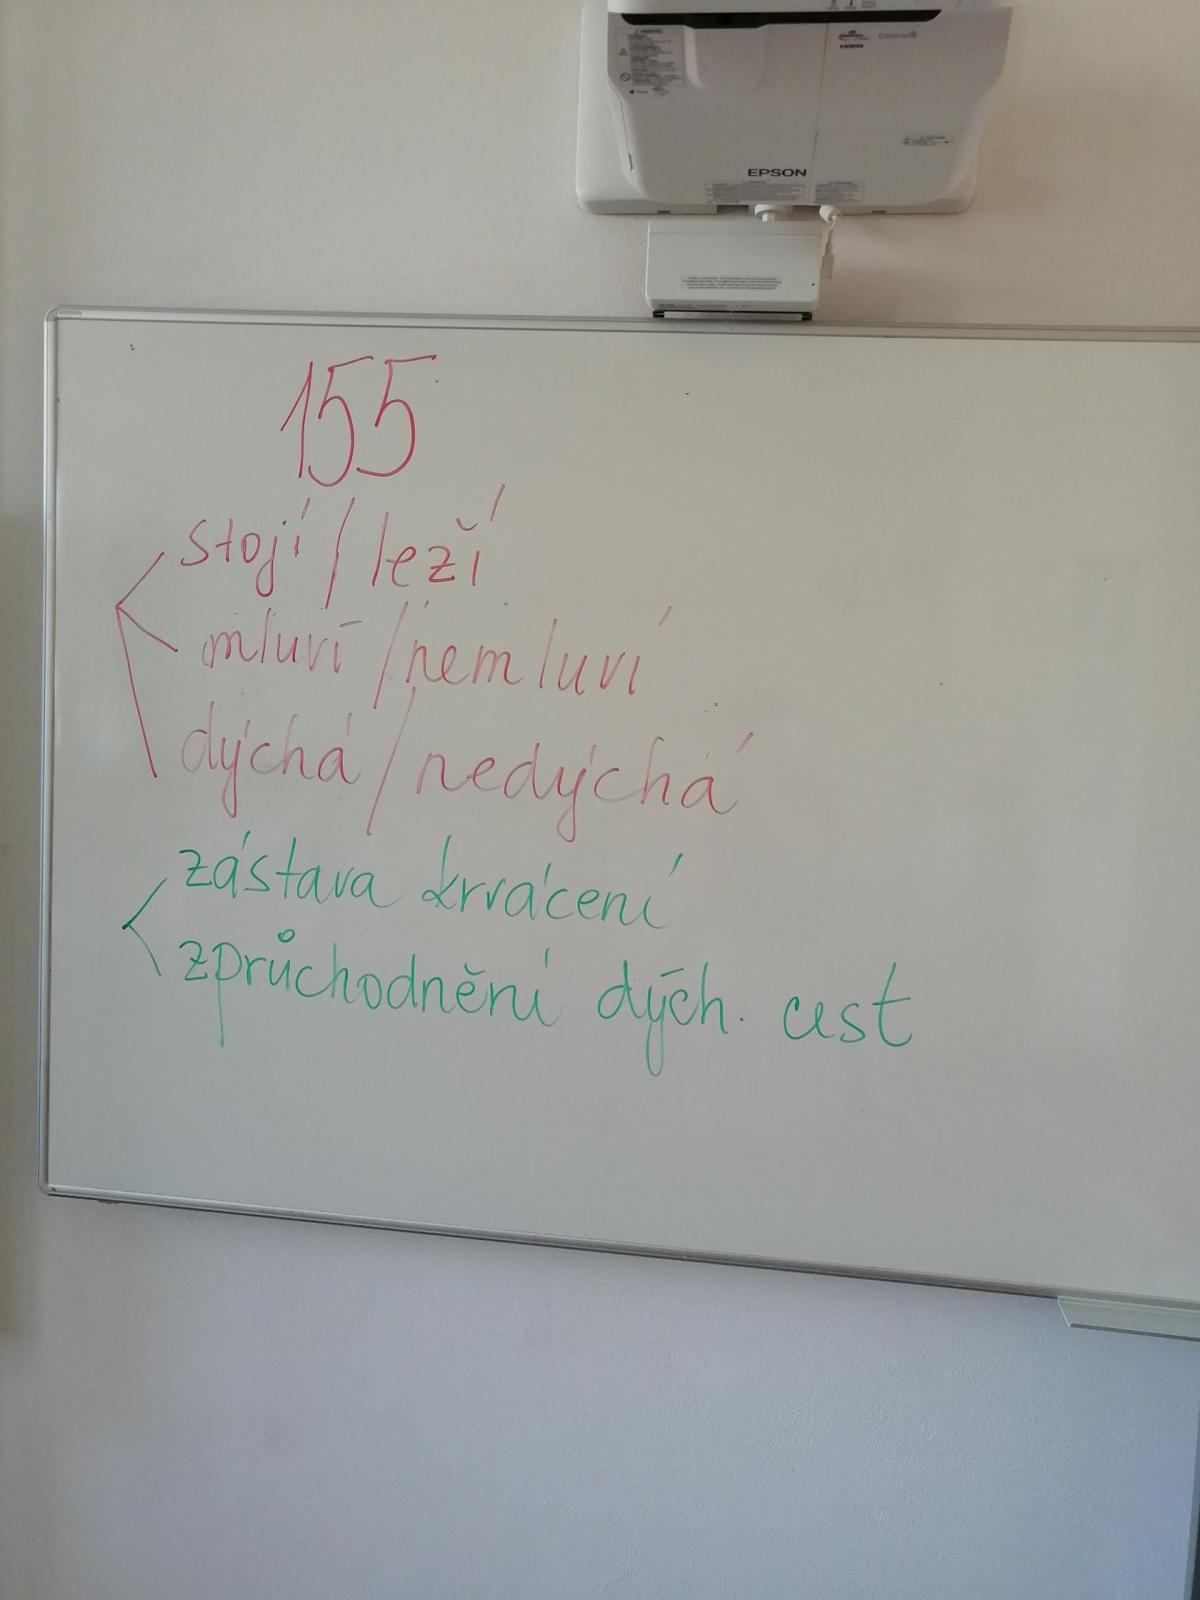 EPSON
155
stojí / leží
mluví / nemluví
dýchá / nedýchá
zástava krvácení
zprůchodnění dých. cest